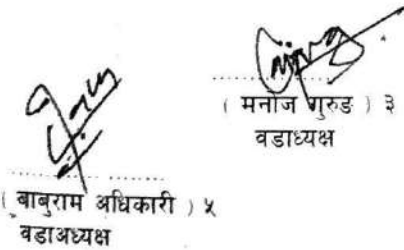 ( मनोज गुरुङ ) ३
वडाध्यक्ष
( बाबुराम अधिकारी ) ५
वडाअध्यक्ष